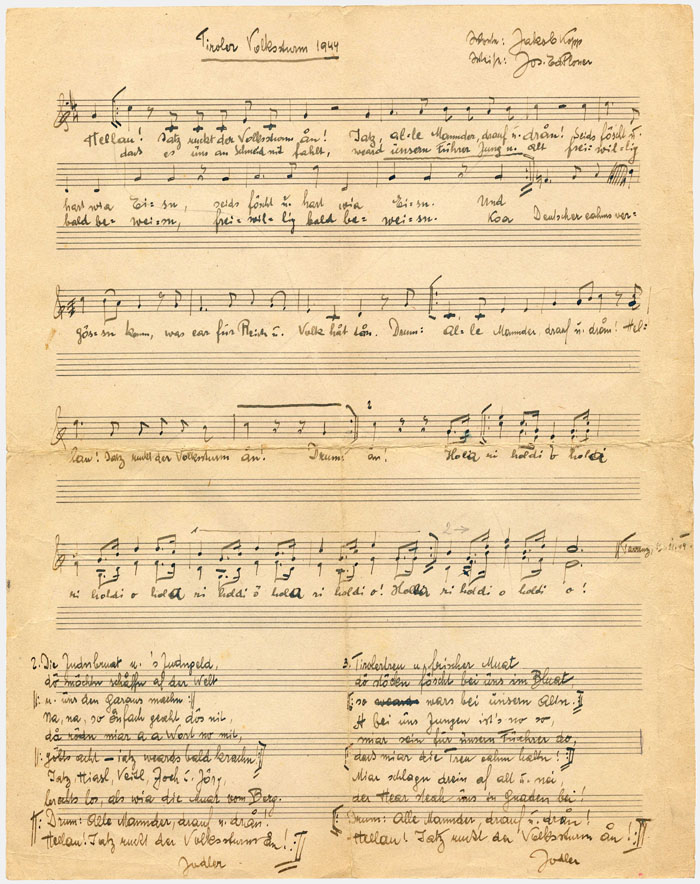 Tiroler Volkssturm 1944
Worte: Jakob Kopp
Weise: Jos. E. Ploner
Hellau! Jatz ruckt der Volkssturm ån! Jatz, al=le Mannder, drauf u. drån! Seids föscht u.
dass es uns an Schneid nit fahlt, weard ünsern Führer Jung u. alt frei=wil=lig
hart wia Ei=sn, seids föscht u. hart wia Ei=sn. Und
bald be=weisn, frei=wil=lig bald be=weisn. Koa Deutscher eahms ver=
göss=sn kann, was ear für Reich u. Volk håt tån. Drum: Al=le Mannder, drauf u. drån! Hel=
lau! Jatz ruckt der Volkssturm ån! Drum: ån! 2 Holla ri holdi o holla
ri holdi o holla ri holdi o holla ri holdi o! Holla ri holdi o holdi o!
2→
2. Die Judnbruat u. 's Judngeld,
dö möchtn schåffn af der Welt
u. üns den Garaus machn
Na, na, so oanfach geaht dös nit,
då rödn miar a a Wort no mit,
göbts acht – jatz weards bald krachn
Jatz Hiasl, Veitl, Joch u. Jörg,
brechts los, als wia die Muar vom Berg.
Drum: Alle Mannder, drauf u. drån!
Hellau! Jatz ruckt der Volkssturm ån!
Jodler
3. Tirolertreu u. frischer Muat
dö stöckn föscht bei üns im Bluat,
so wars bei ünsern Altn.
A bei üns Jungen ist's no so,
miar sein für ünsern Füehrer do,
dass miar die Treu eahm haltn!
Miar schlagn drein af all u. nei,
der Hear steah üns in Gnaden bei!
Drum: Alle Mannder, drauf u. drån!
Hellau! Jatz ruckt der Volkssturm ån!
Jodler